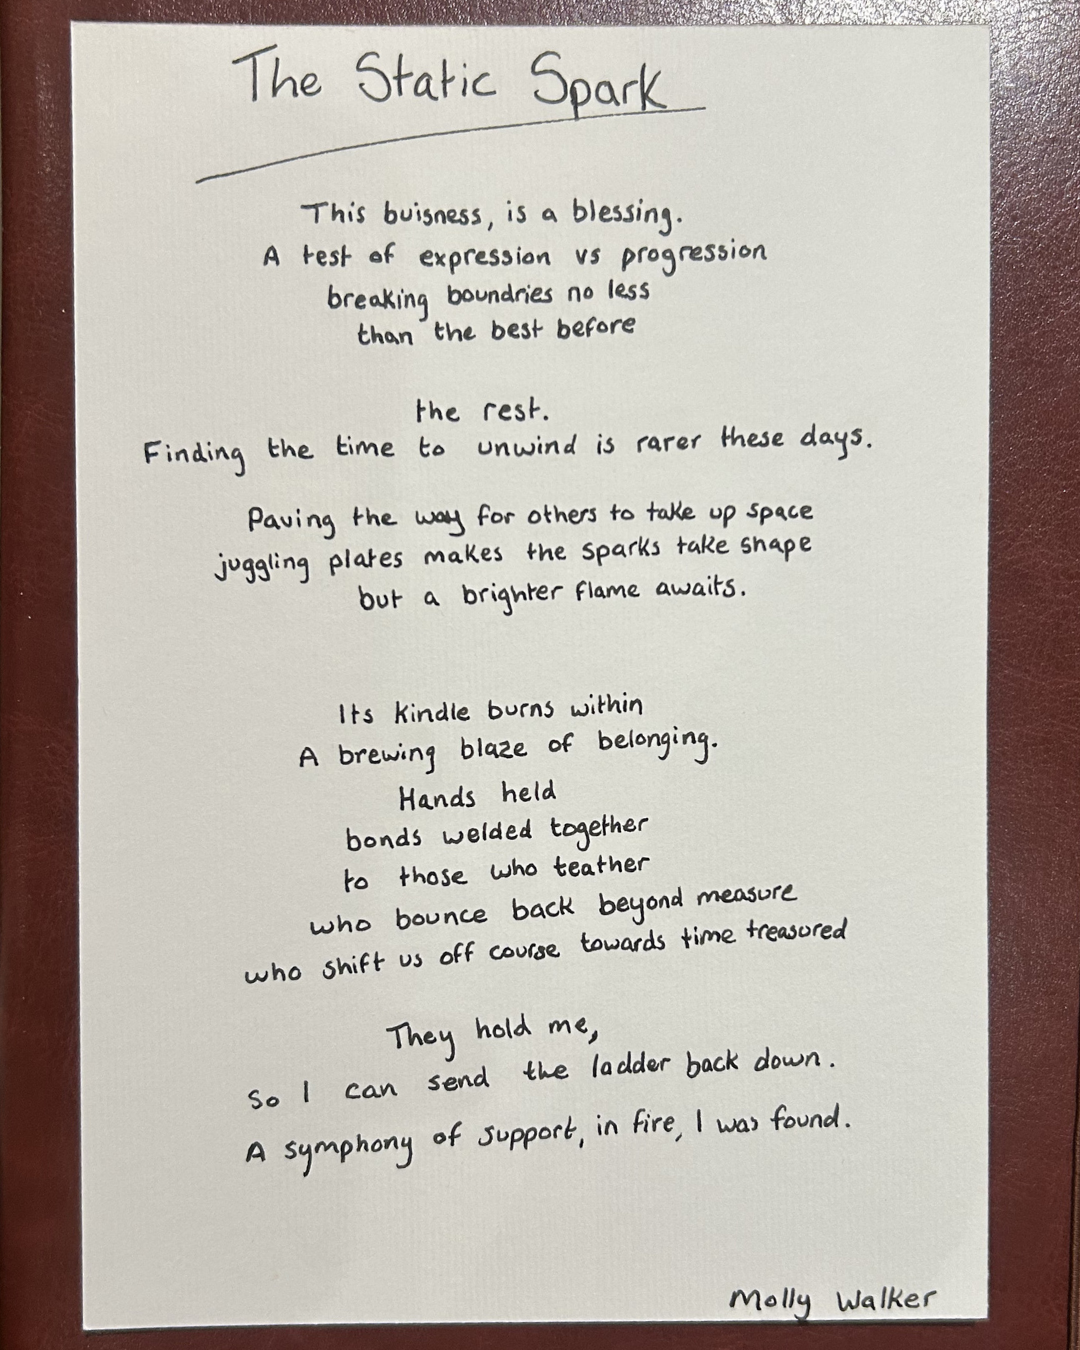 The Static Spark
This buisness, is a blessing.
A test of expression vs progression
breaking boundries no less
than the best before
the rest.
Finding the time to unwind is rarer these days.
Paving the way for others to take up space
juggling plates makes the sparks take shape
but a brighter flame awaits.
Its kindle burns within
A brewing blaze of belonging.
Hands held
bonds welded together
to those who teather
who bounce back beyond measure
who shift us off course towards time treasured
They hold me,
So I can send the ladder back down.
A symphony of support, in fire, I was found.
Molly Walker